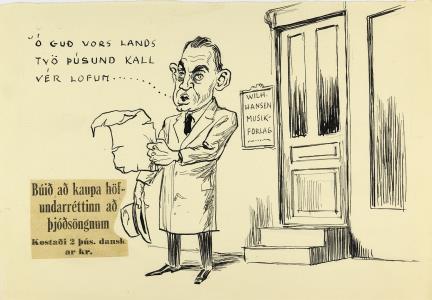 "Ó GUÐ VORS LANDS
TVÖ ÞÚSUND KALL
VÉR LOFUM........
WILH.
HANSEN
MUSIK-
FORLAG
Búið að kaupa höf-
undarréttinn að
þjóðsöngnum
Kostaði 2 þús. dansk
ar kr.